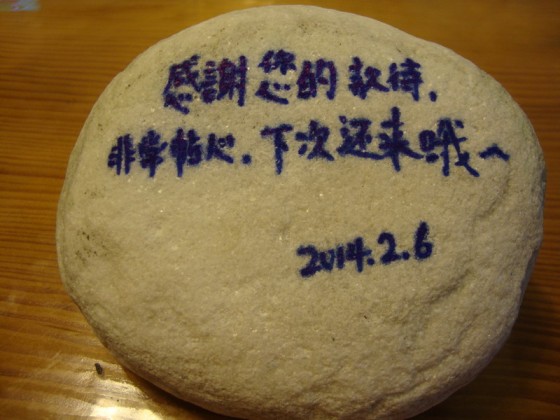 感謝您的款待.
非常帖心.下次还来哦^
2014.2.6